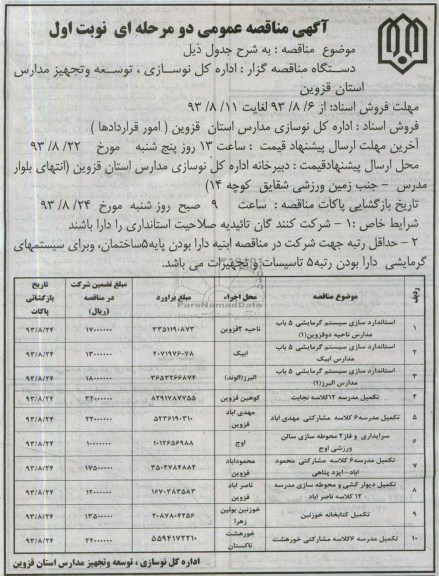 آگهی مناقصه عمومی دو مرحله ای نوبت اول
موضوع مناقصه : به شرح جدول ذیل
دستگاه مناقصه گزار : اداره کل نوسازی ، توسعه وتجهیز مدارس
استان قزوین
مهلت فروش اسناد: از ۶/ ۸/ ۹۳ لغایت ۱۱/ ۸/ ۹۳
فروش اسناد : اداره کل نوسازی مدارس استان قزوین ( امور قراردادها )
آخرین مهلت ارسال پیشنهاد قیمت : ساعت ۱۳ روز پنج شنبه مورخ ۲۲/ ۸/ ۹۳
محل ارسال پیشنهادقیمت : دبیرخانه اداره کل نوسازی مدارس استان قزوین (انتهای بلوار
مدرس - جنب زمین ورزشی شقایق کوچه ۱۴)
تاریخ بازگشایی پاکات مناقصه : ساعت ۹ صبح روز شنبه مورخ ۲۴/ ۸/ ۹۳
شرایط خاص : ۱ - شرکت کنند گان تائیدیه صلاحیت استانداری را دارا باشند
۲ - حداقل رتبه جهت شرکت در مناقصه ابنیه دارا بودن پایه۵ساختمان، وبرای سیستمهای
گرمایشی دارا بودن رتبه۵ تاسیسات وتجهیزات می باشد.
ردیف موضوع مناقصه محل اجراء مبلغ برآورد مبلغ تضمین شرکت در مناقصه (ریال) تاریخ بازگشائی پاکات
۱ استاندارد سازی سیستم گرمایشی ۵ باب مدارس ناحیه دوقزوین(۱) ناحیه ۲قزوین ۳۳۵۱۱۹۰۸۷۳ ۱۷۰۰۰۰۰۰ ۹۳/۸/۲۴
۲ استاندارد سازی سیستم گرمایشی ۵ باب مدارس آبیک آبیک ۲۰۷۱۹۷۶۰۷۸ ۱۳۰۰۰۰۰۰ ۹۳/۸/۲۴
۳ استاندارد سازی سیستم گرمایشی ۵ باب مدارس البرز(۱) البرز(الوند) ۳۶۵۳۲۶۶۸۷۴ ۱۸۰۰۰۰۰۰ ۹۳/۸/۲۴
۴ تکمیل مدرسه ۱۲کلاسه نجابت کوهین قزوین ۸۲۹۱۷۸۷۷۵۵ ۳۲۰۰۰۰۰۰ ۹۳/۸/۲۴
۵ تکمیل مدرسه۶ کلاسه مشارکتی مهدی آباد مهدی آباد قزوین ۵۲۳۶۱۹۰۳۱۰ ۲۲۰۰۰۰۰۰ ۹۳/۸/۲۴
۶ سرایداری و فاز۲ محوطه سازی سالن ورزشی آوج آوج ۱۰۱۲۶۵۶۹۸۸ ۱۰۰۰۰۰۰۰ ۹۳/۸/۲۴
۷ تکمیل مدرسه۶ کلاسه مشارکتی محمود آباد-ایزد پناهی محمودآباد قزوین ۳۵۰۴۷۸۴۸۸۴ ۱۷۵۰۰۰۰۰ ۹۳/۸/۲۴
۸ تکمیل دیوار کشی و محوطه سازی مدرسه ۱۲ کلاسه ناصر آباد ناصر آباد قزوین ۱۶۷۰۳۸۳۵۸۳ ۱۲۰۰۰۰۰۰ ۹۳/۸/۲۴
۹ تکمیل کتابخانه خوزنین خوزنین بوئین زهرا ۲۰۸۷۸۰۴۲۵۶ ۱۳۵۰۰۰۰۰ ۹۳/۸/۲۴
۱۰ تکمیل مدرسه ۶کلاسه مشارکتی خورهشت خورهشت تاکستان ۵۵۹۴۱۷۲۲۱۰ ۲۴۰۰۰۰۰۰ ۹۳/۸/۲۴
اداره کل نوسازی ، توسعه وتجهیز مدارس استان قزوین